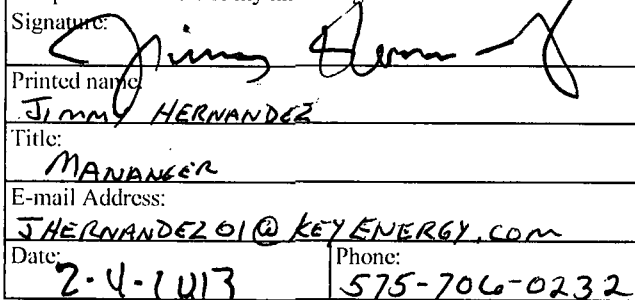 Signature:
Jimmy Hernandez
Printed name:
JIMMY HERNANDEZ
Title:
MANANGER
E-mail Address:
JHERNANDEZ01@KEYENERGY.COM
Date: Phone:
2-4-2013 575-706-0232